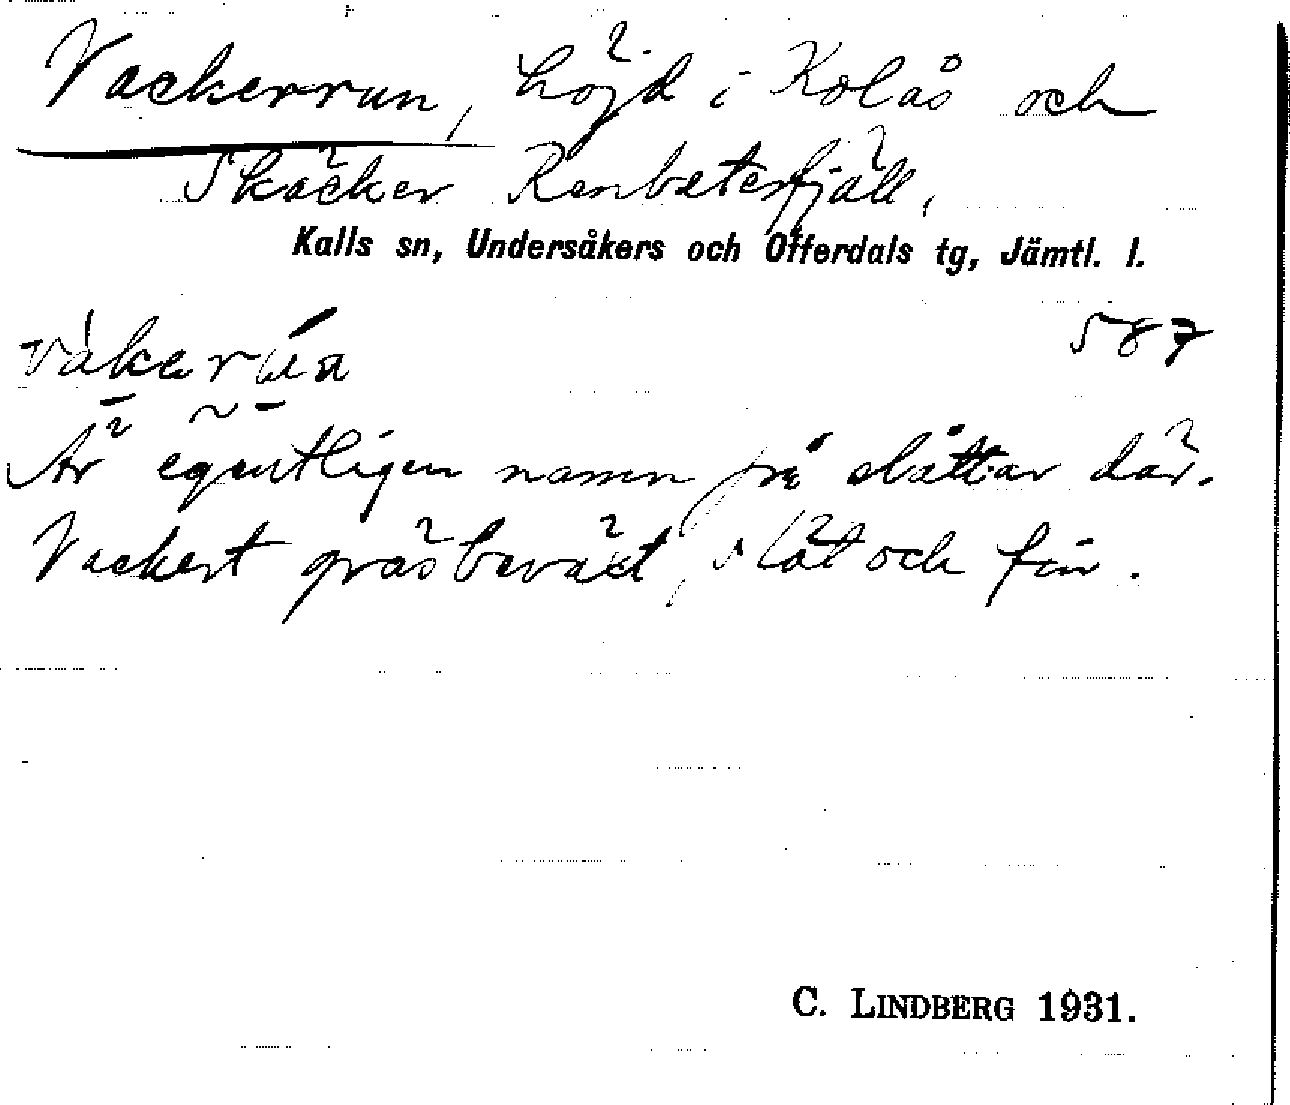 Vackerrun, höjd i Kolås och
Skäcker Renbetesfjäll,
Kalls sn, Undersåkers och Offerdals tg, Jämtl. l.
vàkerún 587
Är egentligen namn på slåttar där.
Vackert gräsbeväxt, slät och fin.
C. LINDBERG 1931.